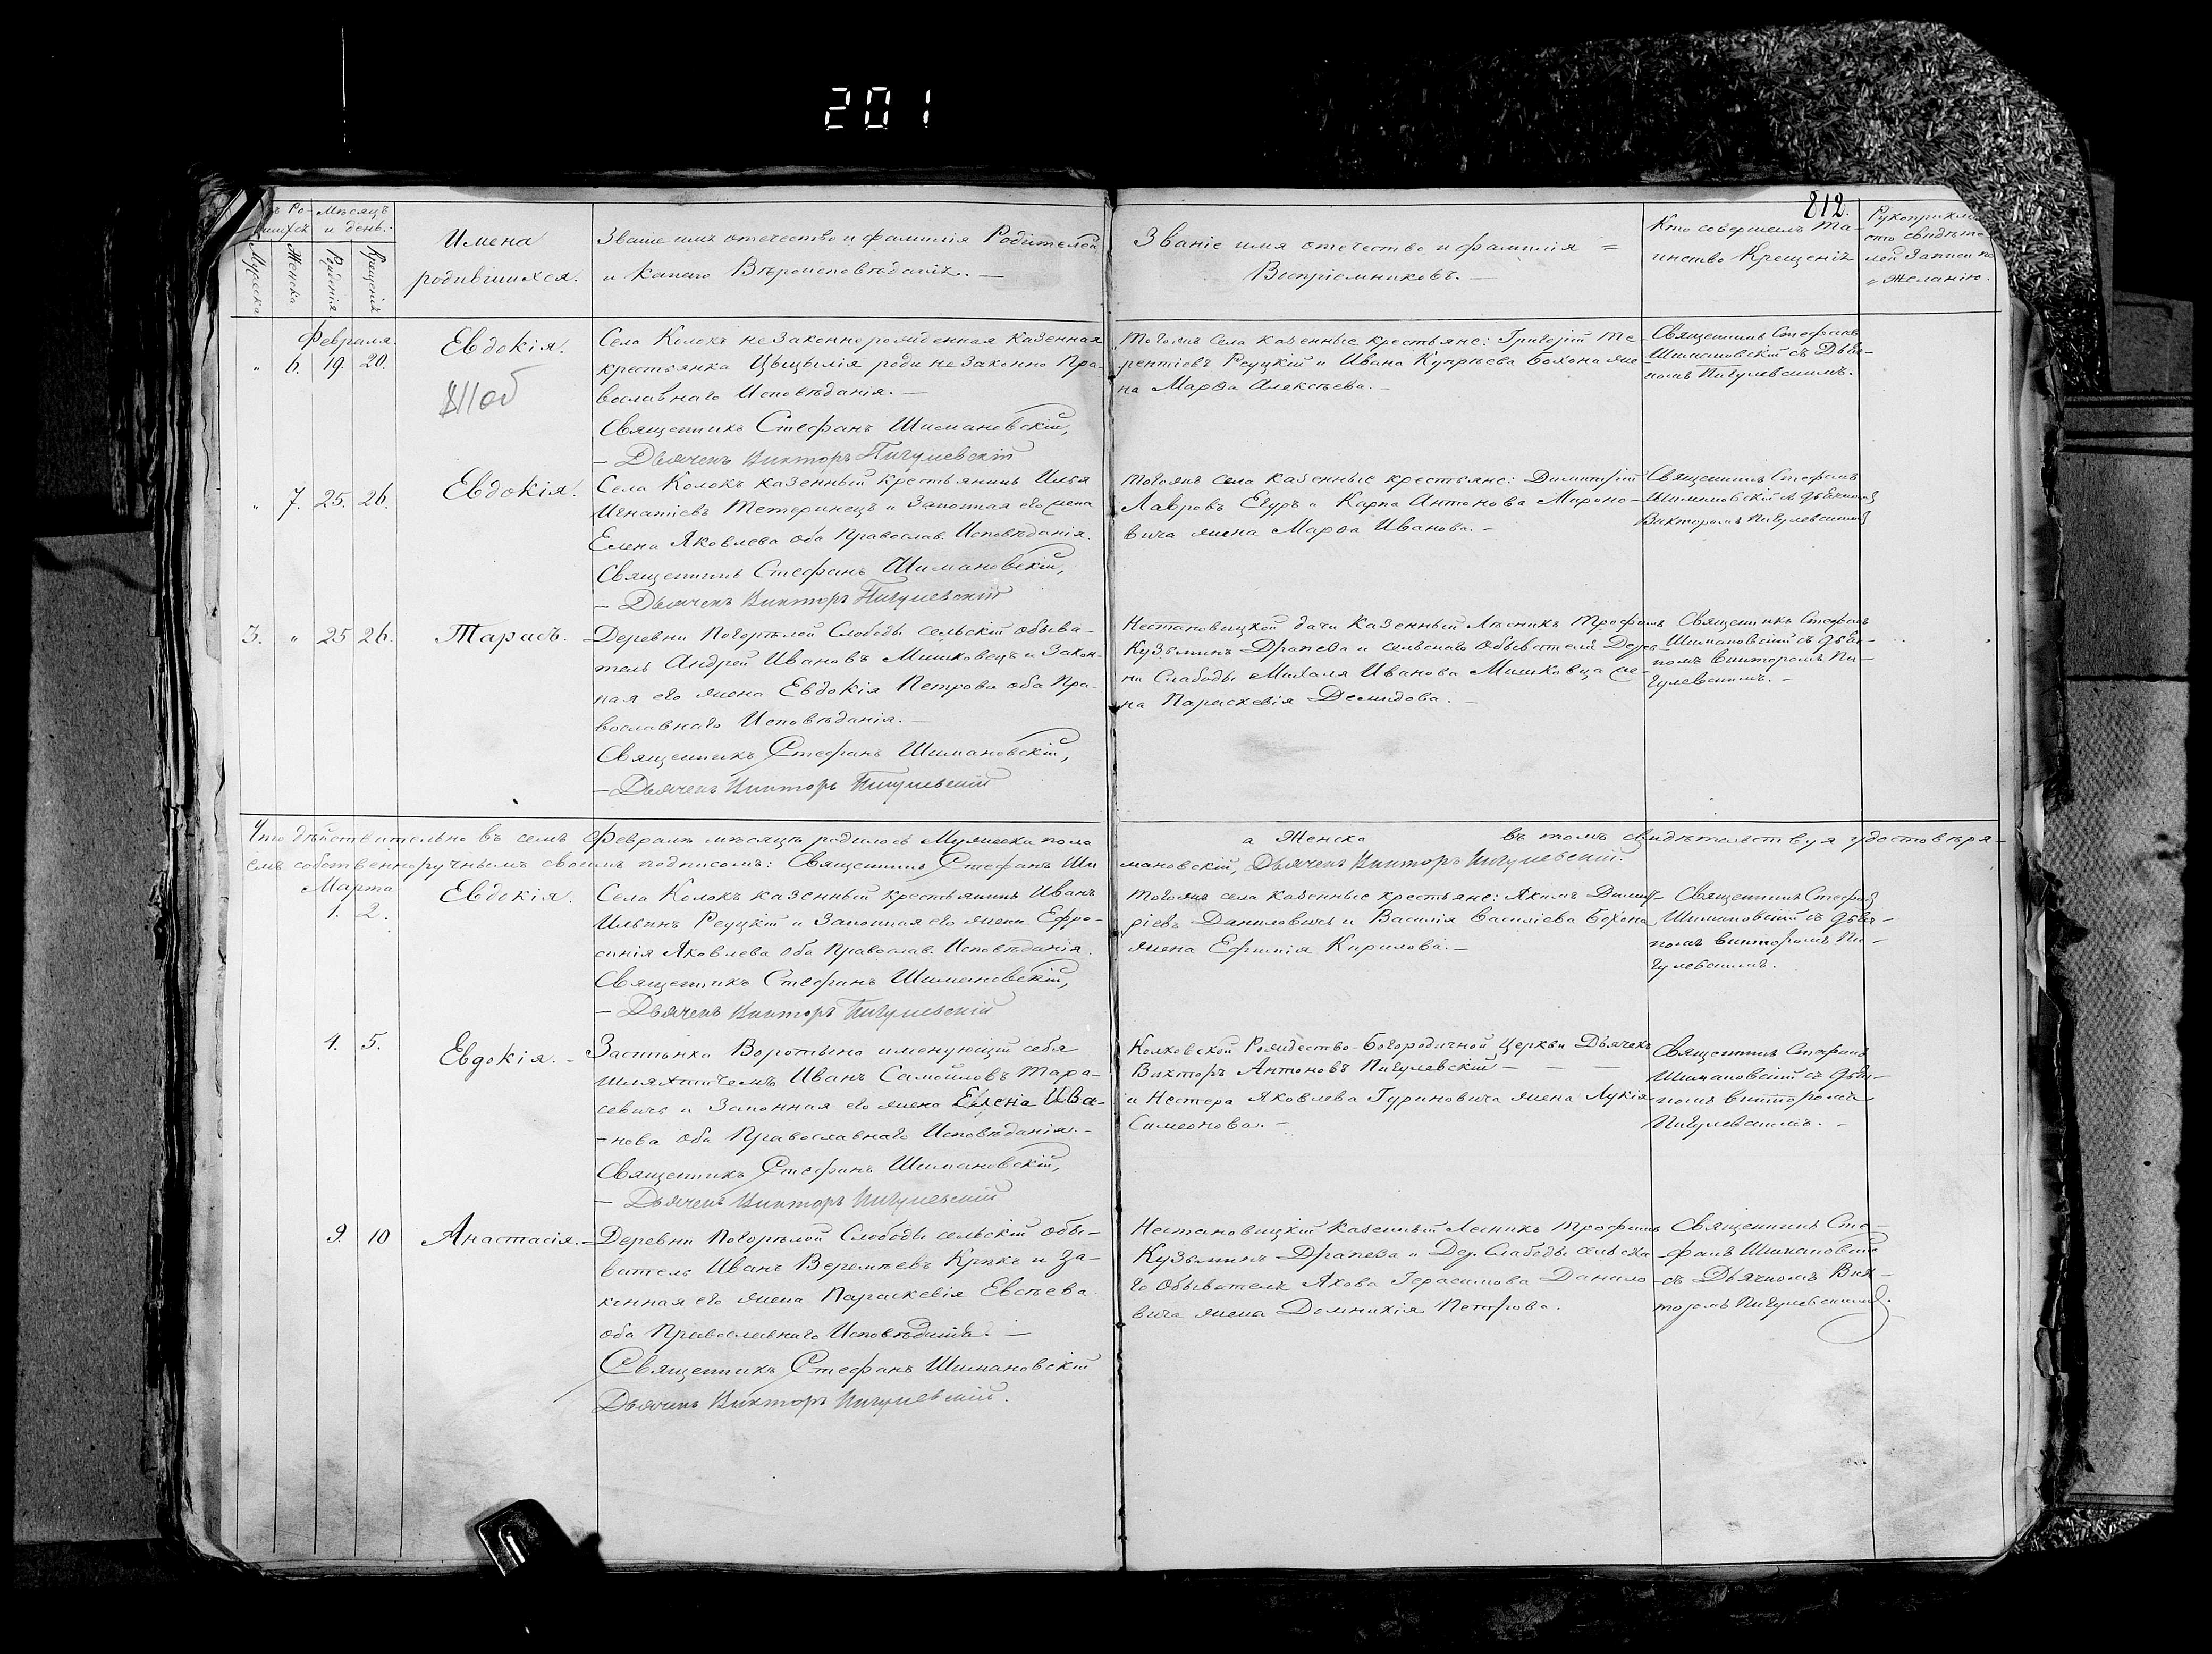 201
812.
Мѣсяцъ
и день.
Мужеска
Женска
Рожденія
Крещенія
Имена
родившихся.
Званіе имя отечество и фамилія Родителей
и какого Вѣроисповѣданія. —
Званіе имя отечество и фамилія =
Воспріемниковъ. —
Кто совершалъ Та-
инство Крещенія
Рукоприклад
ство свидѣте
лей записи по
желанію.
Февраля.
" 6. 19. 20.
Евдокія.
Села Колокъ незаконнорожденная казенная
крестьянка Цыцылія роди незаконно Пра-
вославнаго Исповѣданія. —
Священникъ Стефанъ Шимановскій,
— Дьячекъ Викторъ Пигулевскій
Тогожъ села казенные крестьяне: Григорій Те-
рентіевъ Реуцкій и Ивана Купрѣева Бохона же-
на Марѳа Алексѣева. —
Священникъ Стефанъ
Шимановскій съ Дьяч-
комъ Пигулевскимъ.
" 7. 25. 26.
Евдокія.
Села Колокъ казенный крестьянинъ Илья
Игнатіевъ Тетеринецъ и Законная его жена
Елена Яковлева оба Православ. Исповѣданія.
Священникъ Стефанъ Шимановскій,
— Дьячекъ Викторъ Пигулевскій
Тогожъ села казенные крестьяне: Димитрій
Лавровъ Егуръ и Карпа Антонова Мироно-
вича жена Марѳа Иванова. —
Священникъ Стефанъ
Шимановскій съ Дьячкомъ
Викторомъ Пигулевскимъ
3. " 25 26.
Тарасъ.
Деревни Погорѣлой Слободы сельскій обыва-
тель Андрей Ивановъ Мишковецъ и Закон-
ная его жена Евдокія Петрова оба Пра-
вославнаго Исповѣданія. —
Священникъ Стефанъ Шимановскій,
— Дьячекъ Викторъ Пигулевскій
Нестановицкой дачи Казенный Лѣсникъ Трофимъ
Кузьминъ Драпеза и сельскаго Обывателя Дерев-
ни Слабоды Михаля Иванова Мишковца же-
на Параскевія Демидова. —
Священникъ Стефанъ
Шимановскій съ Дьяч-
комъ Викторомъ Пи-
гулевскимъ. —
Что дѣйствительно въ семъ Февралѣ мѣсяцѣ родилось Мужеска пола а Женска въ томъ свидѣтельствуя удостовѣря-
емъ собственноручнымъ своимъ подписомъ: Священникъ Стефанъ Ши мановскій, Дьячекъ Викторъ Пигулевскій.
Марта
1. 2.
Евдокія.
Села Колокъ казенный крестьянинъ Иванъ
Ильинъ Реуцкій и Законная его жена Ефро-
синія Яковлева оба Православ. Исповѣданія.
Священникъ Стефанъ Шимановскій,
— Дьячекъ Викторъ Пигулевскій
Тогожъ села казенные крестьяне: Якимъ Димит-
ріевъ Даниловичъ и Василія Василіева Бохона
жена Ефимія Кирилова. —
Священникъ Стефанъ
Шимановскій съ Дьяч-
комъ Викторомъ Пи-
гулевскимъ.
4. 5.
Евдокія. —
Застѣнка Воротына именующій себя
шляхтичемъ Иванъ Самойловъ Тара-
севичъ и Законная его жена Елена Ива-
-нова оба Православнаго Исповѣданія. —
Священникъ Стефанъ Шимановскій,
— Дьячекъ Викторъ Пигулевскій
Колковской Рождество-Богородичной Церкви Дьячекъ
Викторъ Антоновъ Пигулевскій — — —
и Нестера Яковлева Гуриновича жена Лукія
Симеонова. —
Священникъ Стефанъ
Шимановскій съ Дьяч-
комъ Викторомъ
Пигулевскимъ. —
9. 10
Анастасія. —
Деревни Погорѣлой Слободы сельскій обы-
ватель Иванъ Веремѣевъ и За-
конная его жена Параскевія Евсѣева
оба Православнаго Исповѣданія. —
Священникъ Стефанъ Шимановскій
Дьячекъ Викторъ Пигулевскій.
Нестановицкій Казенный Лесникъ Трофимъ
Кузьминъ Драпеза и Дер. Слабоды сельска-
го Обывателя Якова Герасимова Данило-
вича жена Домникія Петрова.
Священникъ Сте-
фанъ Шимановскій
съ Дьячкомъ Вик-
торомъ Пигулевскимъ.